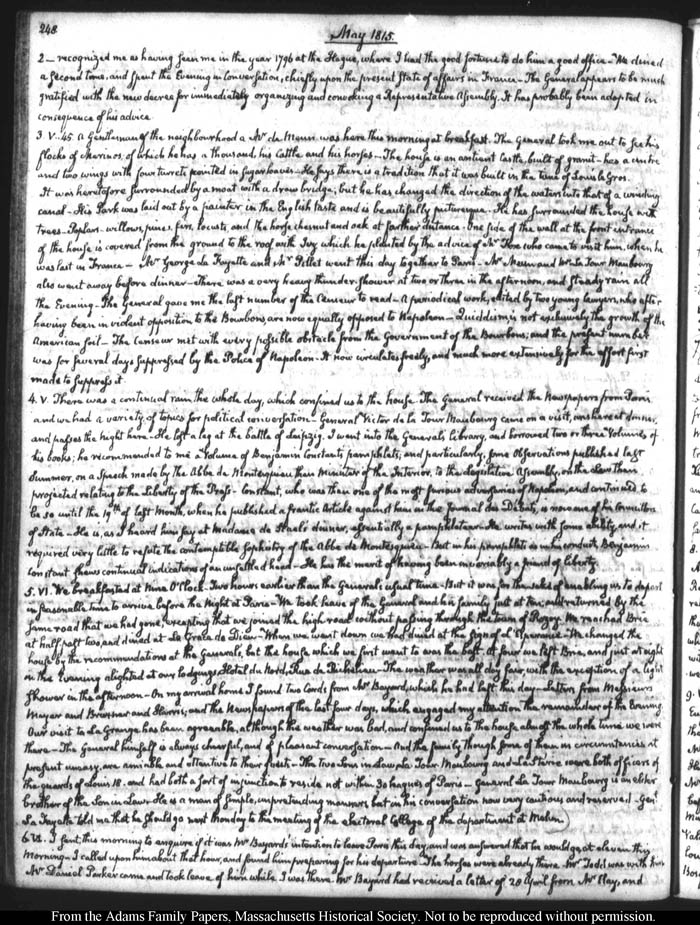 248
May 1815.
2 — recognized me as having seen me in the year 1796 at the Hague, where I had the good fortune to do him a good office — We dined
a second time, and spent the Evening in Conversation, chiefly upon the present State of affairs in France — The General appears to be much
gratified with the new decree for immediately organizing and convoking a Representative Assembly. It has probably been adopted in
consequence of his advice
3. V. 45. A Gentleman of the neighbourhood a Mr de Mun, was here this morning at breakfast. The General took me out to see his
flocks of merinos, of which he has a thousand, his Cattle and his horses — The house is an antient Castle, built of granit — has a centre
and two wings with four turrets pointed in sugar loaves — He says there is a tradition that it was built in the time of Louis le Gros.
It was heretofore surrounded by a moat with a draw bridge; but he has changed the direction of the waters into that of a winding
canal — His Park was laid out by a painter in the English taste and is beautifully picturesque. He has surrounded the house with
trees — Poplars, willows, pines, firs, locusts, and the horse chesnut and oak at farther distance. One side of the wall at the front entrance
of the house is covered from the ground to the roof with Ivy which he planted by the advice of Mr Fox who came to visit him, when he
was last in France — Mr George la Fayette and Mr Pillet went this day together to Paris — Mr and Mr La Tour Maubourg
also went away before dinner — There was a very heavy thunder shower at two or three in the afternoon, and steady rain all
the Evening — The General gave me the last number of the Censeur to read — A periodical work, edited by two young lawyers, who after
having been in violent opposition to the Bourbons, are now equally opposed to Napoleon — Quiddism is not exclusively the growth of the
American soil — The Censeur met with every possible obstacle from the Government of the Bourbons; and the present number
was for several days suppressed by the Police of Napoleon. It now circulates freely, and much more extensively for the effort first
made to suppress it
4. V. There was a continual rain the whole day, which confined us to the house. The General received the Newspapers from Paris
and we had a variety of topics for political conversation — General Victor de la Tour Maubourg came on a visit, was here at dinner,
and passes the night here — He lost a leg at the battle of Leipzig. I went into the General's Library, and borrowed two or three Volumes of
his books; he recommended to me a Volume of Benjamin Constant's pamphlets; and particularly, some Observations published last
Summer, on a Speech made by the Abbé de Montesquieu then Minister of the Interior, to the Legislative Assembly, on the Law then
projected relating to the Liberty of the Press — Constant, who was then one of the most furious adversaries of Napoleon, and continued to
be so until the 19th of last Month, when he published a frantic Article against him in the Journal des Debats, is now one of his Counsellors
of State — He is, as I heard him say at Madame de Stael's dinner, essentially a pamphleteer — He writes with some ability, and it
required very little to refute the contemptible sophistry of the Abbé de Montesquieu — But in his pamphlets as in his conduct, Benjamin
Constant shews continual indications of an unsettled head — He has the merit of having been invariably a friend of liberty.
5. VI. We breakfasted at Nine O'Clock — Two hours earlier than the General's usual time — But it was for the sake of enabling us to depart
in seasonable time to arrive before the Night at Paris — We took leave of the General and his family just at ten, and returned by the
same road that we had gone, excepting that we joined the high road without passing through the town of Rozoy. We reached Brie
at half past two and dined at La Grace de Dieu — When we went down we had dined at the sign of — We changed the
house by the recommendations at the General's, but the house which we first went to was the best. At four we left Brie, and just at eight
in the Evening alighted at our lodgings, Hotel du Nord, Rue de Richelieu — The weather was all day fair, with the exception of a light
shower in the afternoon — On my arrival home I found two Cards from Mr Bayard, which he had left this day — Letters from Messieurs
Meyer and Bruxner and Harris; and the Newspapers of the last four days, which engaged my attention the remainder of the Evening.
Our visit to La Grange has been agreeable, although the weather was bad, and confined us to the house almost the whole time we were
there — The General himself is always cheerful, and of pleasant conversation — And the family though some of them in circumstances at
present uneasy, are amiable and attentive to their guests — The two Sons in Law La Tour Maubourg and Lasteyrie were both officers of
the guards of Louis 18. and had both a sort of injunction to reside not within 30 leagues of Paris — General La Tour Maubourg is an elder
brother of the Son in Law — He is a man of simple, unpretending manners, but in his conversation now very cautious and reserved — Genl
La Fayette told me that he should go next Monday to the meeting of the electoral College of the department at Melun.
6. VI. I sent this morning to enquire if it was Mr Bayard's intention to leave Paris this day, and was answered that he would go at eleven this
Morning — I called upon him about that hour, and found him preparing for his departure — The horses were already there — Mr Todd was with him
Mr Daniel Parker came and took leave of him while I was there. Mr Bayard had received a letter of 20 April from Mr Clay, and
From the Adams Family Papers, Massachusetts Historical Society. Not to be reproduced without permission.